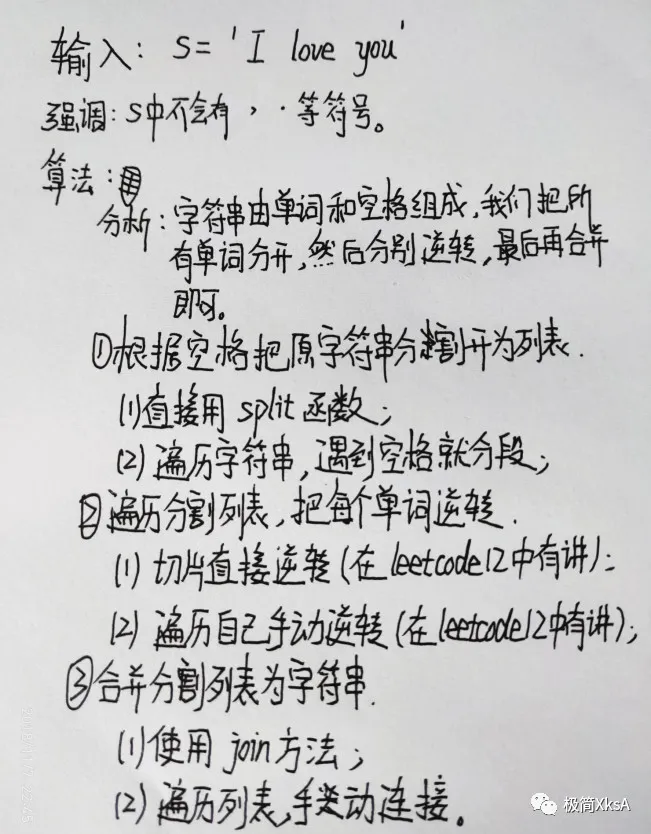 输入: S= 'I love you'
强调: S中不会有 , . 等符号。
算法:
分析: 字符串由单词和空格组成,我们把所
有单词分开,然后分别逆转,最后再合并
即可。
①根据空格把原字符串分割开为列表.
(1)直接用split函数;
(2)遍历字符串,遇到空格就分段;
②遍历分割列表,把每个单词逆转.
(1)切片直接逆转(在leetcode12中有讲);
(2)遍历自己手动逆转(在leetcode12中有讲);
③合并分割列表为字符串.
(1)使用join方法;
(2)遍历列表,手动连接。
极简XksA